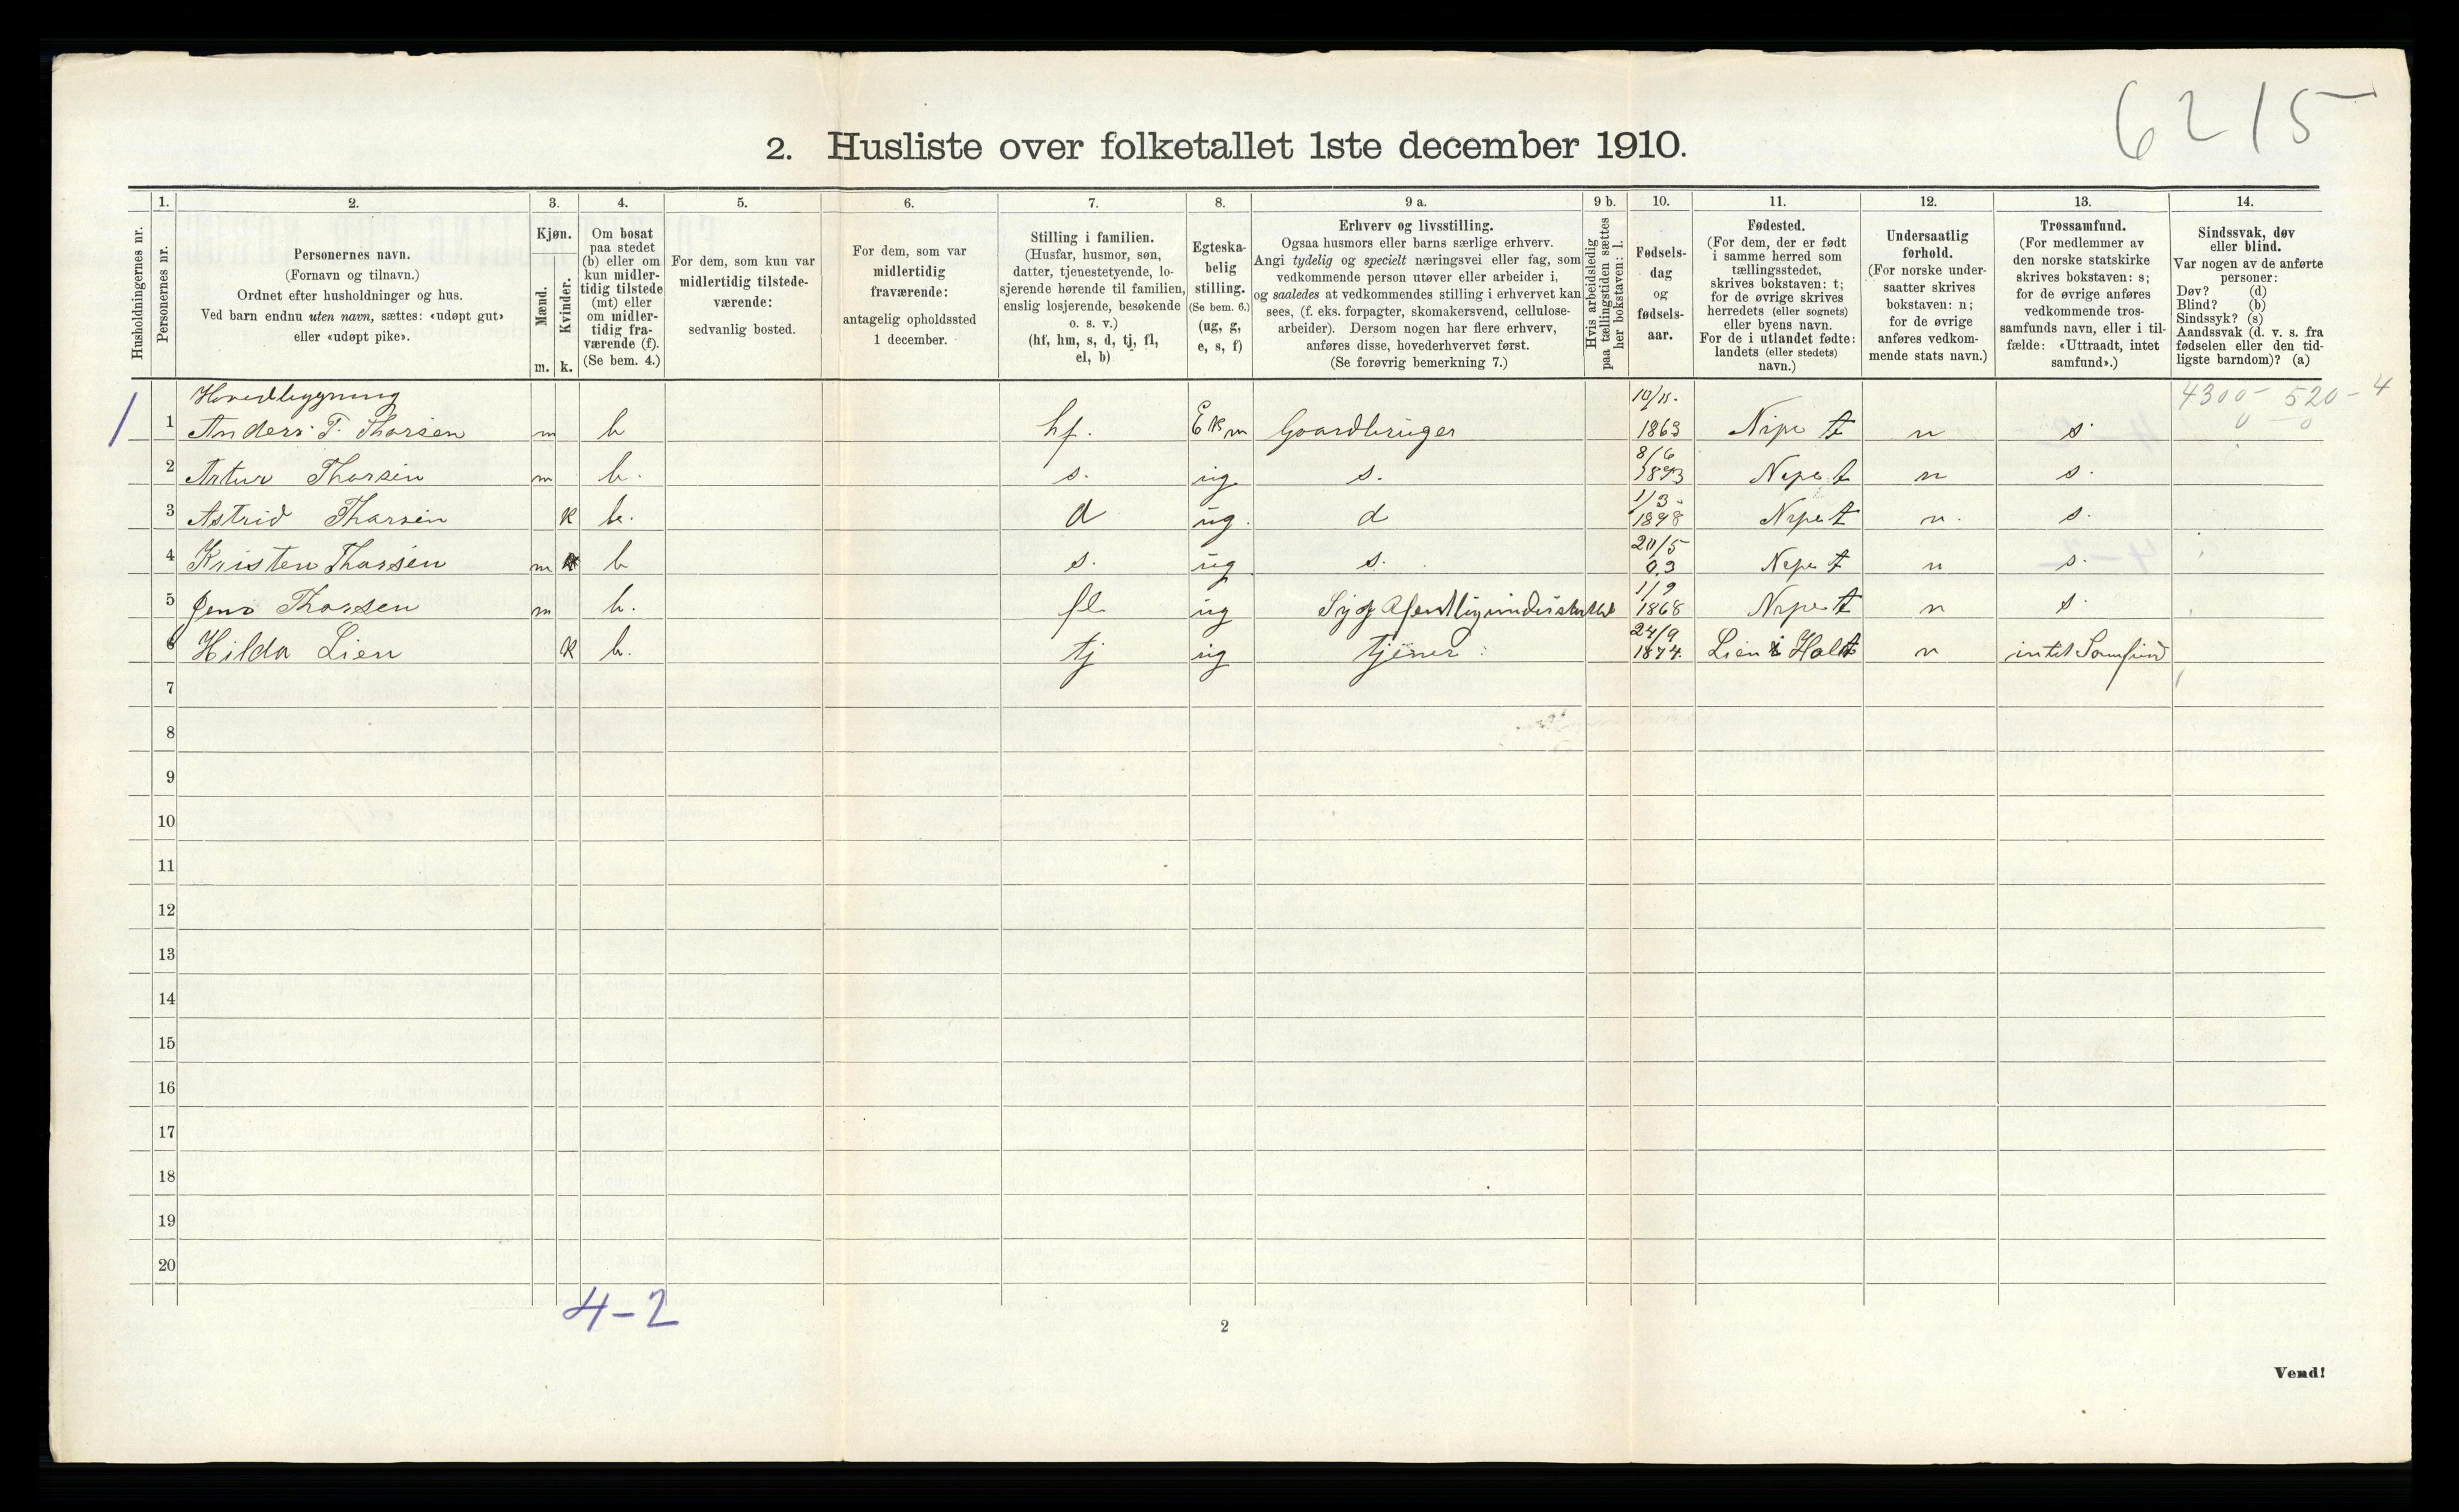 6215
2. Husliste over folketallet 1ste december 1910.
Husholdningernes nr.
1.
Personernes nr.
2.
Personernes navn.
(Fornavn og tilnavn.)
Ordnet efter husholdninger og hus.
Ved barn endnu uten navn, sættes: «udøpt gut»
eller «udøpt pike».
3.
Kjøn.
Mænd.
Kvinder.
m. k.
4.
Om bosat
paa stedet
(b) eller om
kun midler-
tidig tilstede
(mt) eller
om midler-
tidig fra-
værende (f).
(Se bem. 4.)
5.
For dem, som kun var
midlertidig tilstede-
værende:
sedvanlig bosted.
6.
For dem, som var
midlertidig
fraværende:
antagelig opholdssted
1 december.
7.
Stilling i familien.
(Husfar, husmor, søn,
datter, tjenestetyende, lo-
sjerende hørende til familien,
enslig losjerende, besøkende
o. s. v.)
(hf, hm, s, d, tj, fl,
el, b)
8.
Egteska-
belig
stilling.
(Se bem. 6.)
(ug, g,
e, s, f)
9 a.
Erhverv og livsstilling.
Ogsaa husmors eller barns særlige erhverv.
Angi tydelig og specielt næringsvei eller fag, som
vedkommende person utøver eller arbeider i,
og saaledes at vedkommendes stilling i erhvervet kan
sees, (f. eks. forpagter, skomakersvend, cellulose-
arbeider). Dersom nogen har flere erhverv,
anføres disse, hovederhvervet først.
(Se forøvrig bemerkning 7.)
9 b.
Hvis arbeidsledig
paa tællingstiden sættes
her bokstaven: l.
10.
Fødsels-
dag
og
fødsels-
aar.
11.
Fødested.
(For dem, der er født
i samme herred som
tællingsstedet,
skrives bokstaven: t;
for de øvrige skrives
herredets (eller sognets)
eller byens navn.
For de i utlandet fødte:
landets (eller stedets)
navn.)
12.
Undersaatlig
forhold.
(For norske under-
saatter skrives
bokstaven: n;
for de øvrige
anføres vedkom-
mende stats navn.)
13.
Trossamfund.
(For medlemmer av
den norske statskirke
skrives bokstaven: s;
for de øvrige anføres
vedkommende tros-
samfunds navn, eller i til-
fælde: «Uttraadt, intet
samfund».)
14.
Sindssvak, døv
eller blind.
Var nogen av de anførte
personer:
Døv? (d)
Blind? (b)
Sindssyk? (s)
Aandssvak (d. v. s. fra
fødselen eller den tid-
ligste barndom)? (a)
Hovedbygning 10/11. 4300- 520-4
1 1 Anders T. Thorsen m b hf. E K m Gaardbruger 1863 Nipe t n s. 0 0
8/6
2 Artur Thorsen m b. s. ug s. 1893 Nipe t n s.
1/3-
3 Astrid Thorsen k b. d ug. d 1898 Nipe t n. s.
20/5
4 Kristen Thorsen m b s. ug s. 03 Nipe t n s.
1/9
5 Jens Thorsen m b. fl ug Syg 1868 Nipe t n s
24/9
6 Hilda Lien k b. tj ug tjener 1874. Lien i Holt n intet Samfund
7
8
9
10
11
12
13
14
15
16
17
18
19
20
4-2
2
Vend!